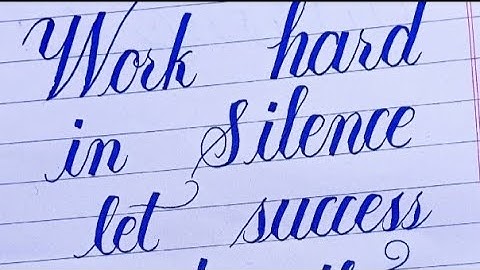 Work hard
in Silence
let success